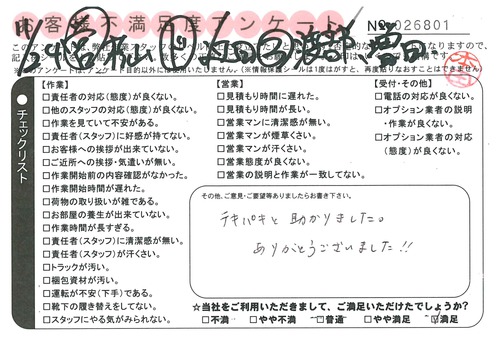 お客様不満足度アンケート
No 026801
チェックリスト
【作業】
□責任者の対応(態度)が良くない。
□他のスタッフの対応(態度)が良くない。
□作業を見ていて不安がある。
□責任者(スタッフ)に好感が持てない。
□お客様への挨拶が出来ていない。
□ご近所への挨拶・気遣いが無い。
□作業開始前の内容確認がなかった。
□作業開始時間が遅れた。
□荷物の取り扱いが雑である。
□お部屋の養生が出来ていない。
□作業時間が長すぎる。
□責任者(スタッフ)に清潔感が無い。
□責任者(スタッフ)が汗くさい。
□トラックが汚い。
□梱包資材が汚い。
□運転が不安(下手)である。
□靴下の履き替えをしてない。
□スタッフにやる気がみられない。
【営業】
□見積もり時間に遅れた。
□見積もり時間が長い。
□営業マンに清潔感が無い。
□営業マンが煙草くさい。
□営業マンが汗くさい。
□営業態度が良くない。
□営業の説明と作業が一致してない。
【受付・その他】
□電話の対応が良くない。
□オプション業者の説明
・作業が良くない。
□オプション業者の対応
(態度)が良くない。
その他、ご意見・ご要望等ありましたらお書き下さい。
テキパキと助かりました。
ありがとうございました!!
☆当社をご利用いただきまして、ご満足いただけたでしょうか?
□不満 □やや不満 □普通 □やや満足 ☑満足